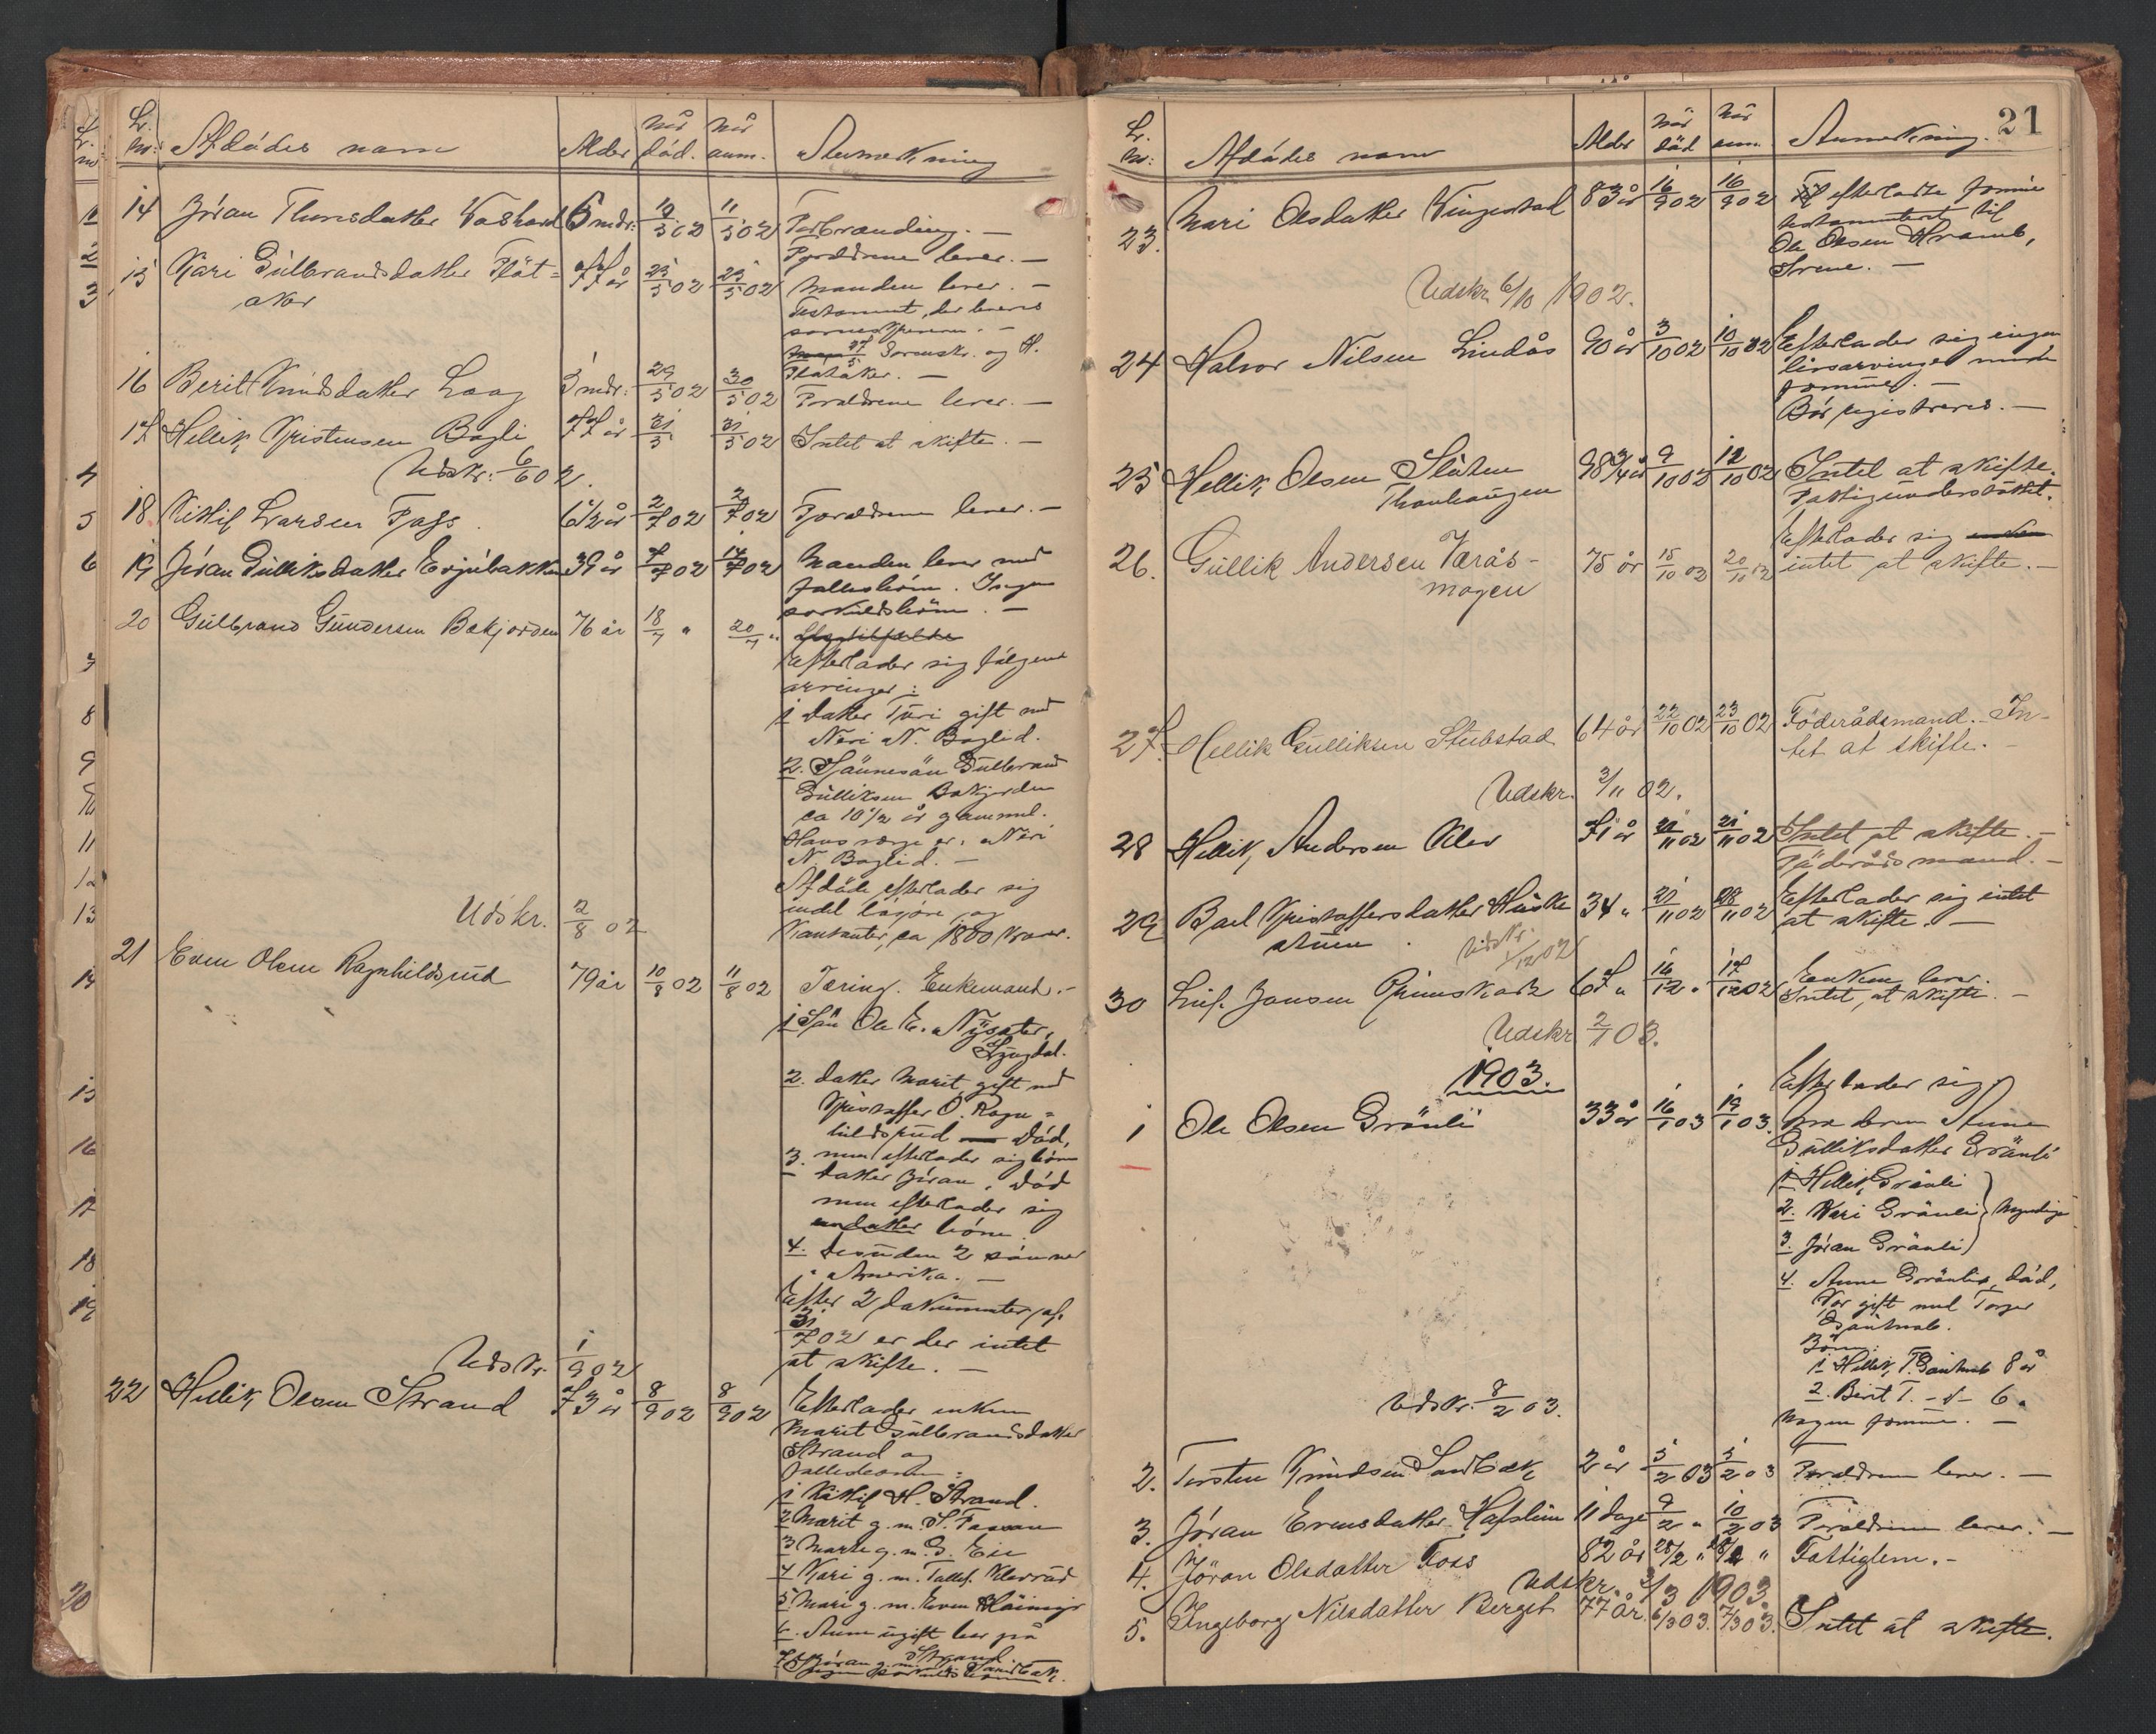 Lr. nr: Afdødes navn Alder når død. når anm. Anmerkning
14 Jøran Thorsdatter 6 mdr: 10/5 02 11/5 02 Forbrænding. —
Forældrene lever. —
15 Kari Gulbrandsdatter Flåt= 77 år 23/5 02 25/5 02 Manden lever. —
aker
Testament, der leveres
27/5 Sorenskr. og H.
Flatåker. —
16 Berit Knudsdatter Laag 3 mdr: 29/5 02 30/5 02 Forældrene lever. —
17 Hellik Kristensen Bagli 77 år 31/5 31/5 02 Intet at skifte. —
Udskr: 6/6 02.
18 Kittil Larsen Fass. 6 1/2 år 2/7 02 2/7 02 Forældrene lever. —
19 Jøran Gulliksdatter Evjubakken 39 år 7/7 02 14/7 02 Manden lever med
fællesbørn. Ingen
særkuldsbørn. —
20 Gulbrand Gundersen Bakjorden 76 år 18/7 " 20/7 "
Efterlader sig følgende
arvinger:
1 datter Turi gift med
Neri N. Baglid.
2. Sønnesøn Gulbrand
Gulliksen Bakjorden
ca 10 1/2 år gammel.
Hans værge er: Neri
N. Baglid. —
Afdøde efterlader sig
endel løsøre og
kontanter ca 1800 kroner.
Udskr. 2/8 02
21 Even Olsen Ragnhildsrud 79 år 10/8 02 11/8 02 Tæring. Enkemand. —
1 Søn Ole E. Nysæter,
Sigdal.
2. datter Marit gift med
Kristoffer O. Ragn=
hildsrud — død,
3. men efterlader sig børn
datter Jøran, død
men efterlader sig
en datter børn.
4. desuden 2 sønner
i Amerika. —
Efter 2 dokumenter af
31/7 02 er der intet
at skifte. —
Udskr. 1/9 02
22 Hellik Olsen Strand 73 år 8/9 02 8/9 02 Efterlader enken
Marit Gulbrandsdatter
Strand og
fællesbørn:
1 Kittil H. Strand.
2 Marit g. m. S. Fassan
3 Marte g. m. G. Eie
4 Kari g. m. Tollef. Kleverud
5 Mari g. m. Even
6. Anne ugift bor på
Strand
7 Jøran g. m.
Ingen særkuldsbørn

21
Lr. nr: Afdødes navn Alder når død når anm. Anmerkning.
23. Mari Olsdatter Kingestad 83 år 16/9 02 16/9 02 efterladte formue
testamenteret til
Ole Olsen Hramb,
Grene. —
Udskr. 6/10 1902.
24 Halvor Nilsen Lindås 90 år 3/10 02 10/10 02 Efterlader sig ingen
livsarvinger
formue. —
Bør registreres. —
25 Hellik Olsen Slåtten 98 3/4 år 9/10 02 12/10 02 Intet at skifte.
Thonhaugen
Fattigunderstøttet.
26. Gullik Andersen Værås- 75 år 15/10 02 20/10 02 Efterlader sig
mogen
intet at skifte. —
27. Hellik Gulliksen Stubstad 64 år 22/10 02 23/10 02 Føderådsmand. — In-
tet at skifte. —
Udskr. 3/11 02.
28 Hellik Andersen Klev 71 år 21/11 02 21/11 02 Intet at skifte. —
Føderådsmand. —
29 Barl Kristoffersdatter Huske 34 " 21/11 02 28/11 02 Efterlader sig intet
stuen.
at skifte. —
Udskr. 1/12 02
30 Leif. Jansen Grimskard 67 " 16/12 " 17/12 02 Enken lever.
Intet at skifte. —
Udskr 2/1 03.
1903.
1 Ole Olsen Grønli 33 år 16/1 03 19/1 03. Efterlader sig
moderen Anne
Gulliksdatter Grønli
1 Hellik Grønli
2. Kari Grønli } Myndige
3. Jøran Grønli
4. Anne Grønli, død,
Var gift med Torger

Børn:
1 Hellik T. 8 år
2. Birit T. -d- 6.
Nogen formue. —
Udskr. 8/2 03.
2. Torsten Knudsen Sandbæk 2 år 5/2 03 5/2 03 Forældrene lever. —
3. Jøran Evensdatter Hafslien 11 dage 9/2 " 10/2 03 Forældrene lever. —
4. Jöran Olsdatter Foss 82 år 28/2 " 28/2 " Fattiglem. —
Udskr. 3/3 1903
5. Ingeborg Nilsdatter Berget 77 år. 6/3 03. 7/3 03. Intet at skifte.